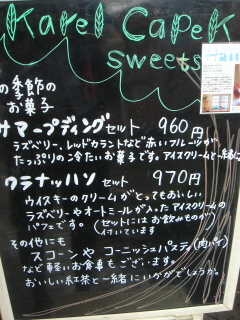 Karel Capek
sweets
の季節の
お菓子
サマープディングセット 960円
ラズベリー、レッドカラントなど赤いフルーツが
たっぷりの冷たいお菓子です。アイスクリームと一緒に
クラナッハンセット 970円
ウイスキーのクリームがとってもおいしい
ラズベリーやオートミールが入ったアイスクリームの
パフェです。(セットにはお飲みものが
付いています)
その他にも
スコーンや コーニッシュパスティ(肉パイ)
など軽いお食事もございます。
おいしい紅茶と一緒にいかがでしょうか。